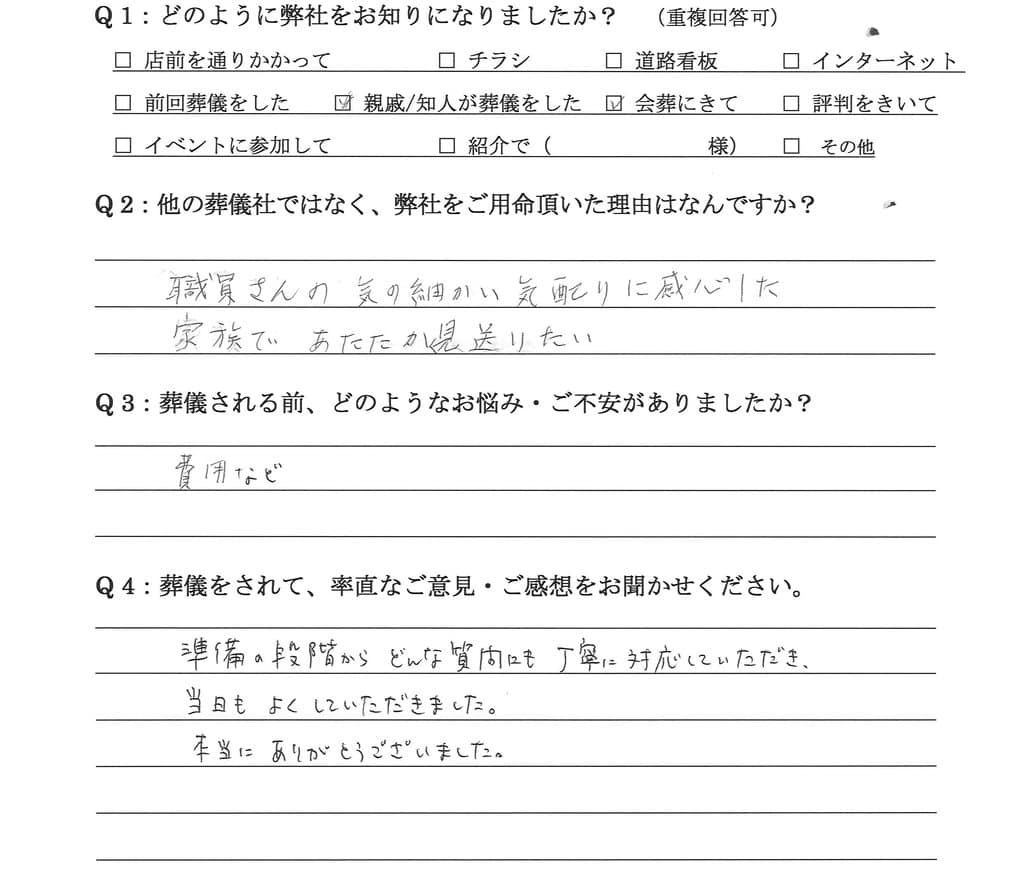 Q1:どのように弊社をお知りになりましたか? (重複回答可)
☐ 店前を通りかかって ☐ チラシ ☐ 道路看板 ☐ インターネット
☐ 前回葬儀をした ☑ 親戚/知人が葬儀をした ☑ 会葬にきて ☐ 評判をきいて
☐ イベントに参加して ☐ 紹介で( 様) ☐ その他
Q2:他の葬儀社ではなく、弊社をご用命頂いた理由はなんですか?
職員さんの 気の細かい 気配りに感心した
家族で あたたか見送りたい
Q3:葬儀される前、どのようなお悩み・ご不安がありましたか?
費用など
Q4:葬儀をされて、率直なご意見・ご感想をお聞かせください。
準備の段階から どんな質問にも 丁寧に対応していただき、
当日も よくしていただきました。
本当に ありがとうございました。